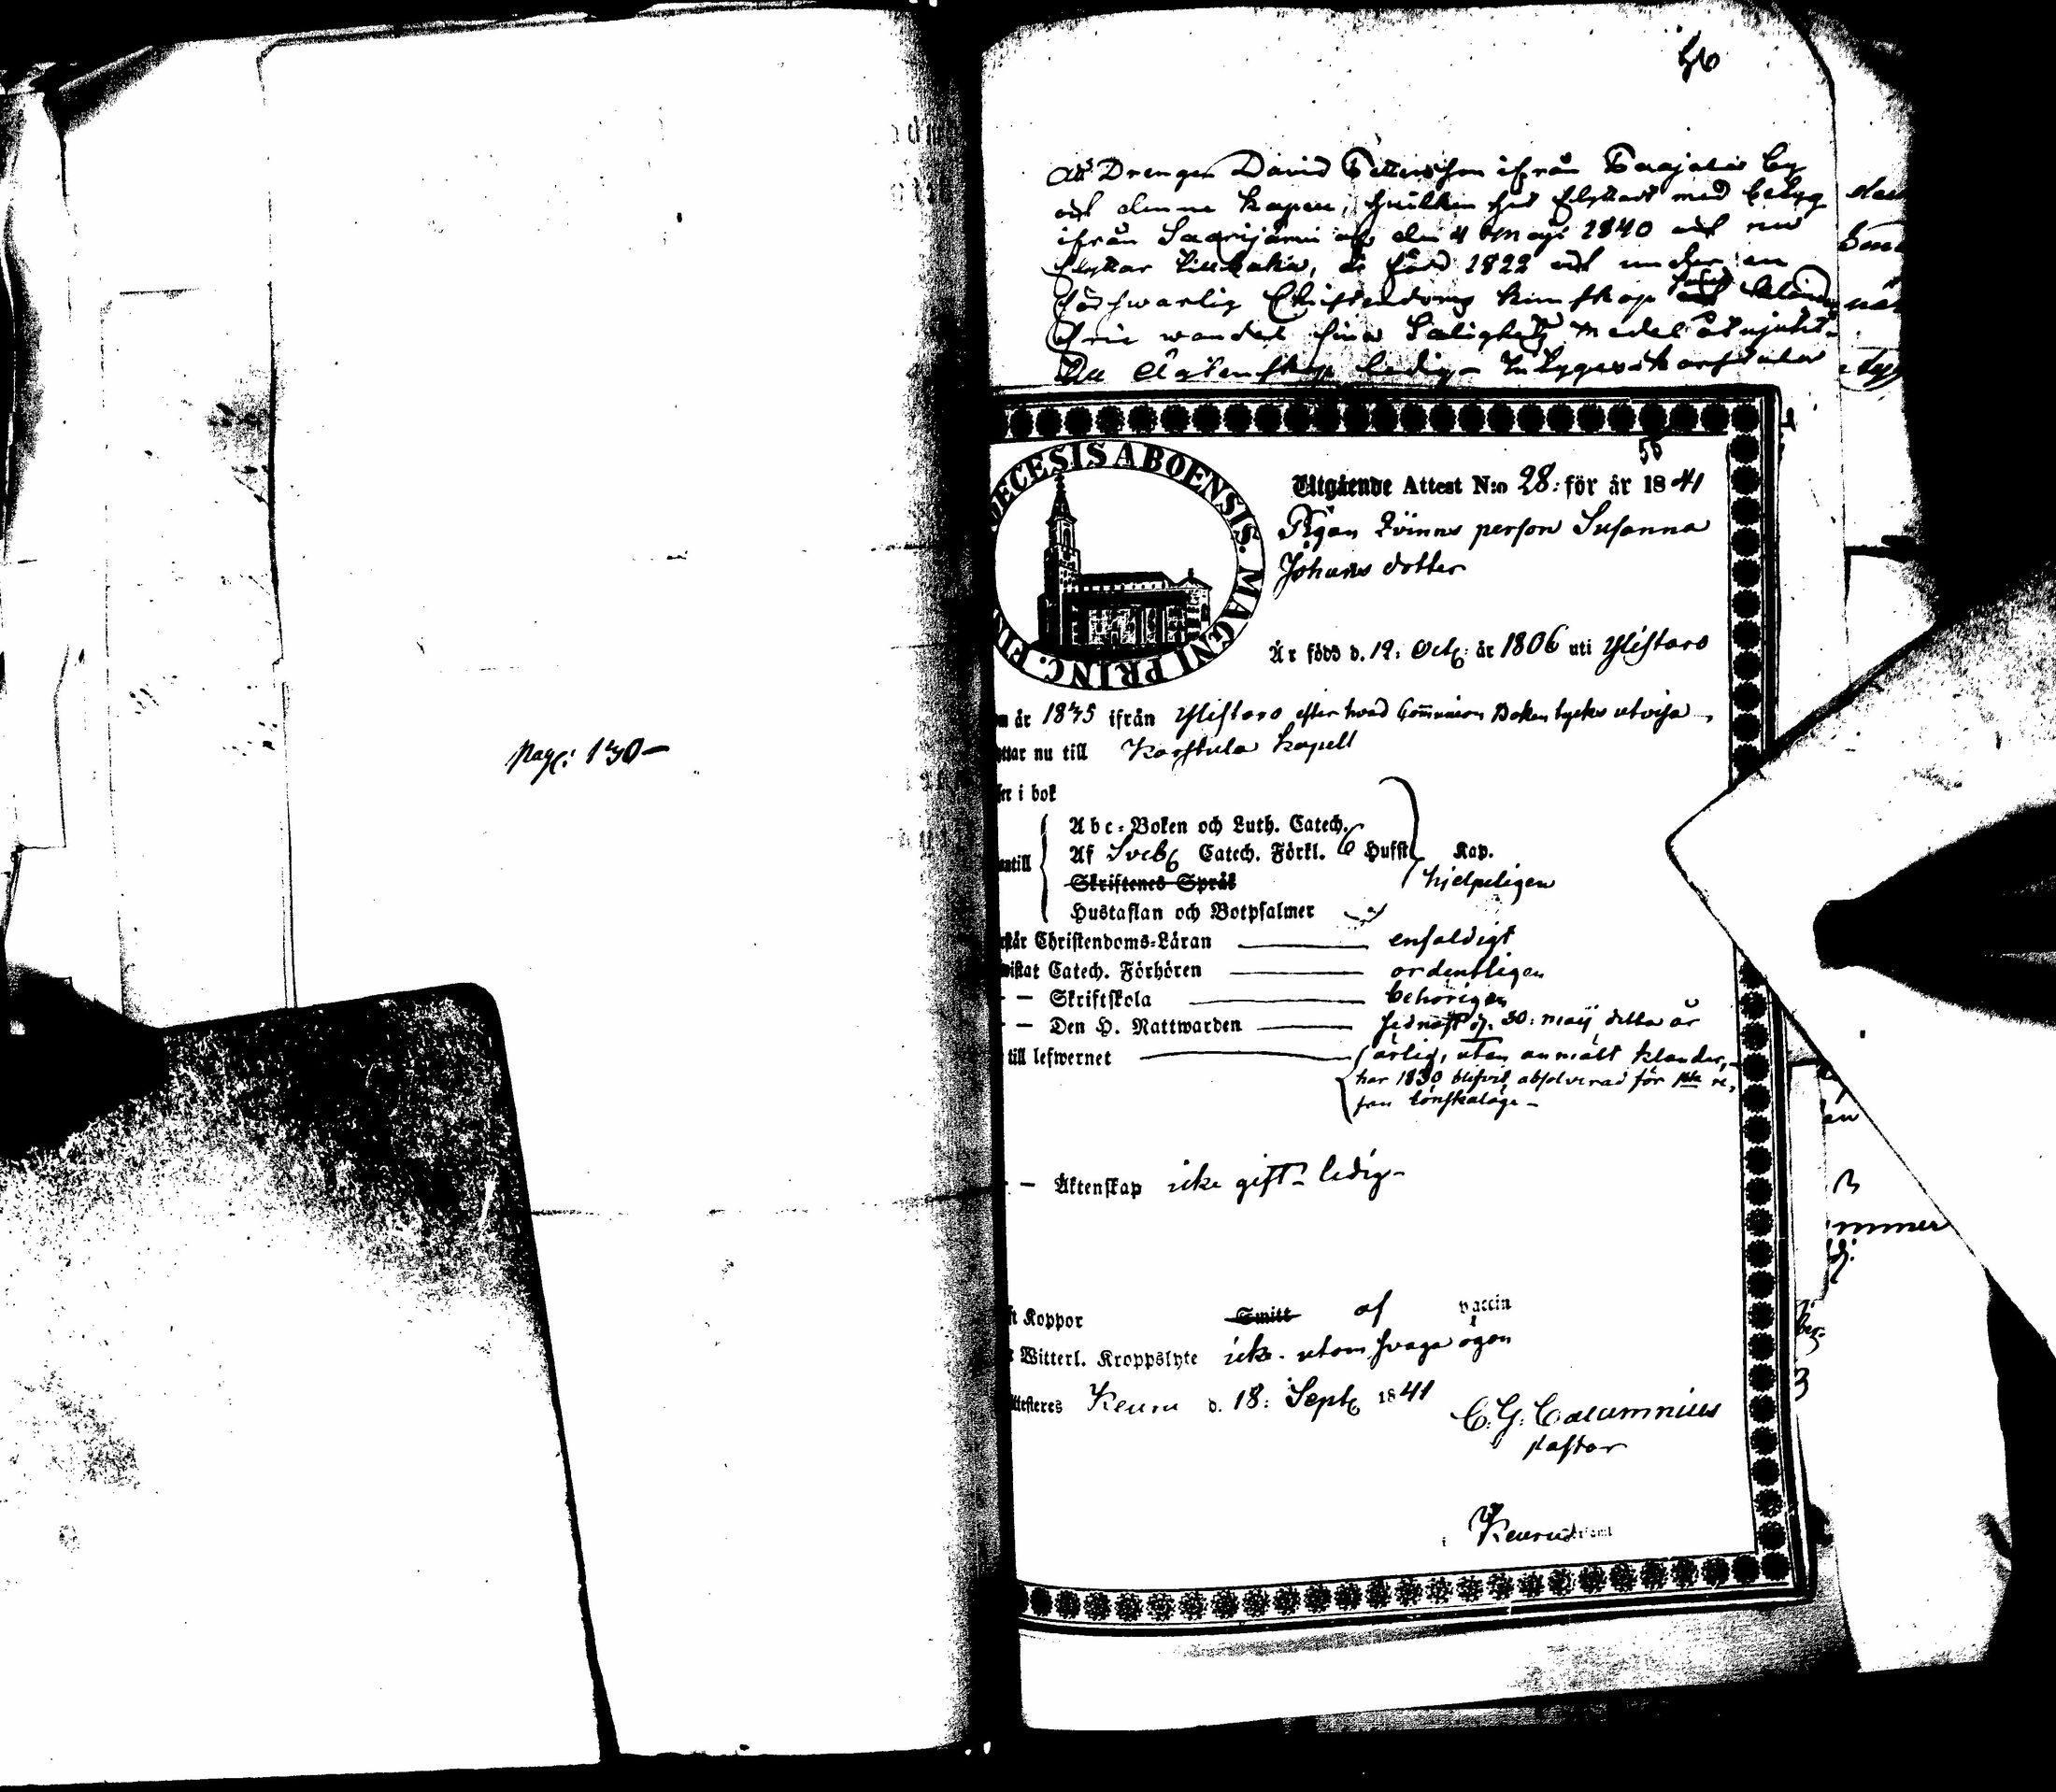 Pag: 130 –
56
Att Drengen David Pettersson ifrån Paajala by
och denna Kapell, hvilken hit flyttat med betyg
ifrån Saarijärvi af den 4 Maji 1840 och nu
flyttar tillbaka, är född 1822 och under en
förswarlig Christendoms kunskap och kland
frie wandel sina Salighetz medel åtnjutit.
till Ägtenskap ledig – betygar Karstula
55
DIŒCESIS ABOENSIS. MAGNI PRINC. FIN
Utgående Attest N:o 28: för år 1841
Pigan Qvinns person Susanna
Johans dotter
Är född d. 12: Octb: år 1806 uti Ylistaro
m år 1835 ifrån Ylistaro efter hvad Communion Boken tyckes utvisa,
ttar nu till Karstula Kapell
ser i bok
Abc-Boken och Luth. Catech.
antill Af Sveb: Catech. Förkl. 6 Hufst. Kap.
Skriftenes Språk hjelpeligen
Hustaflan och Botpsalmer
rstår Christendoms-Läran enfaldigt
wistat Catech. Förhören ordentligen
– Skriftskola behörigen
– Den H. Nattwarden sednast d. 30: Maij detta år
till lefwernet ärlig, utan anmält klander,
har 1830 blifvit absolverad för 1sta re-
san lönskaläge –
– Äktenskap icke gift – ledig –
ft Koppor Smitt af vaccin
Witterl. Kroppslyte icke. utom svaga ögon
ttesteres Keuru d. 18: Septb 1841
C. G. Calamnius
Pastor
i Keuru